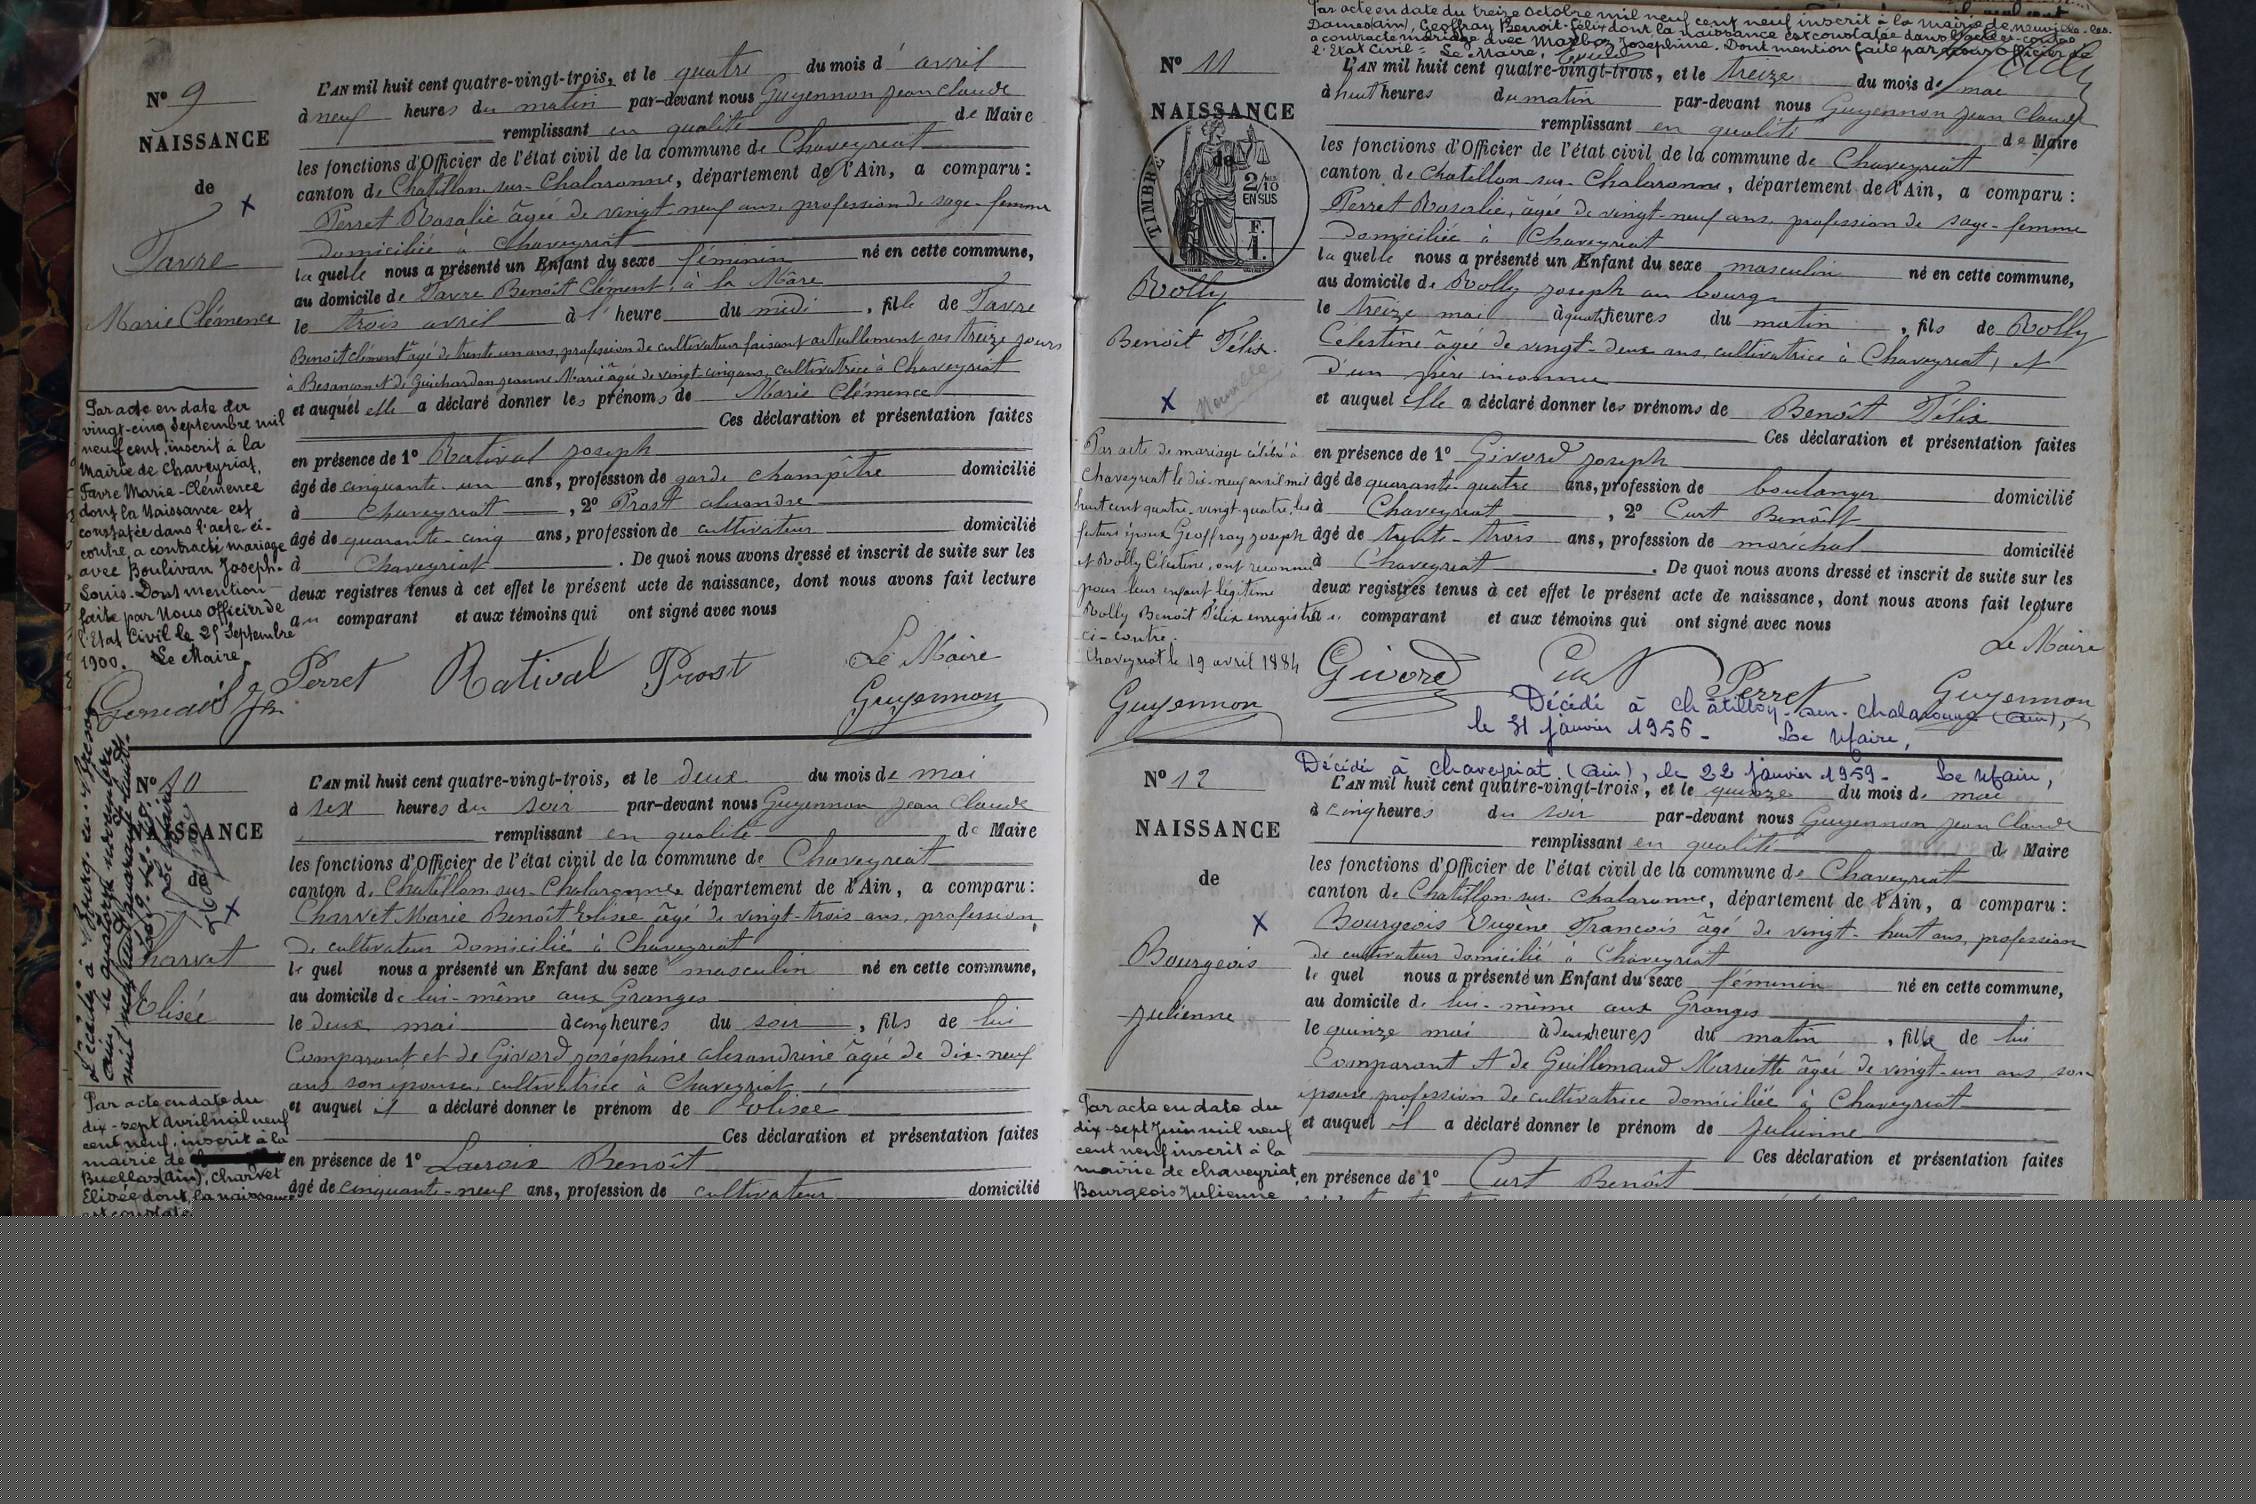 N° 9
NAISSANCE
de
Favre
Marie Clémence
L'AN mil huit cent quatre-vingt-trois, et le quatre du mois d'avril
à neuf heures du matin par-devant nous Guyennon Jean Claude
remplissant en qualité de Maire
les fonctions d'Officier de l'état civil de la commune de Chaveyriat
canton de Chatillon-sur-Chalaronne, département de l'Ain, a comparu :
Perret Rosalie âgée de vingt-neuf ans, profession de sage-femme
domiciliée à Chaveyriat
laquelle nous a présenté un Enfant du sexe féminin né en cette commune,
au domicile de Favre Benoît Clément, à la Mare
le trois avril à l'heure du midi, fille de Favre
Benoît Clément âgé de trente un ans, profession de cultivateur faisant actuellement ses treize jours
à Besançon et de Guichardon Jeanne Marie âgée de vingt-cinq ans, cultivatrice à Chaveyriat
et auquel elle a déclaré donner les prénoms de Marie Clémence
Ces déclaration et présentation faites
en présence de 1° Rativat Joseph
âgé de cinquante-un ans, profession de garde champêtre domicilié
à Chaveyriat, 2° Prost
âgé de quarante-cinq ans, profession de cultivateur domicilié
à Chaveyriat. De quoi nous avons dressé et inscrit de suite sur les
deux registres tenus à cet effet le présent acte de naissance, dont nous avons fait lecture
au comparant et aux témoins qui ont signé avec nous
Le Maire
Perret Rativat Prost Guyennon
Par acte en date du
vingt-cinq Septembre mil
neuf cent, inscrit à la
Mairie de Chaveyriat,
Favre Marie-Clémence
dont la Naissance est
constatée dans l'acte ci-
contre, a contracté mariage
avec Boulivan Joseph-
Louis. Dont mention
faite par Nous Officier de
l'Etat Civil le 25 Septembre
1900. Le Maire,
N° 10
NAISSANCE
de
Charvet
Elisée
L'AN mil huit cent quatre-vingt-trois, et le deux du mois de mai
à six heures du soir par-devant nous Guyennon Jean Claude
remplissant en qualité de Maire
les fonctions d'Officier de l'état civil de la commune de Chaveyriat
canton de Chatillon-sur-Chalaronne, département de l'Ain, a comparu :
Charvet Marie Benoît Elisée âgé de vingt-trois ans, profession
de cultivateur domicilié à Chaveyriat
lequel nous a présenté un Enfant du sexe masculin né en cette commune,
au domicile de lui-même aux Granges
le deux mai à cinq heures du soir, fils de lui
Comparant et de Givord Joséphine Alexandrine âgée de dix-neuf
ans son épouse, cultivatrice à Chaveyriat
et auquel il a déclaré donner le prénom de Elisée
Ces déclaration et présentation faites
en présence de 1° Lacroix Benoît
âgé de cinquante-neuf ans, profession de cultivateur domicilié
Par acte en date du
dix-sept Avril mil neuf
cent neuf, inscrit à la
mairie de
Buellas (Ain), Charvet
Elisée dont la naissance
est constatée
Par acte en date du treize Octobre mil neuf cent neuf inscrit à la mairie de Neuville-les-
Dames (Ain), Geoffray Benoit-Félix dont la naissance est constatée dans l'acte ci-contre
a contracté mariage avec Marboz Joséphine. Dont mention faite par nous Officier de
l'Etat Civil. Le Maire,
N° 11
NAISSANCE
de
TIMBRE
2/10
EN SUS
F.
1.
Rolly
Benoît Félix.
Neuville
L'AN mil huit cent quatre-vingt-trois, et le treize du mois de mai
à huit heures du matin par-devant nous Guyennon Jean Claude
remplissant en qualité de Maire
les fonctions d'Officier de l'état civil de la commune de Chaveyriat
canton de Chatillon-sur-Chalaronne, département de l'Ain, a comparu :
Perret Rosalie, âgée de vingt-neuf ans, profession de sage-femme
domiciliée à Chaveyriat
laquelle nous a présenté un Enfant du sexe masculin né en cette commune,
au domicile de Rolly Joseph au bourg
le treize mai à quatre heures du matin, fils de Rolly
Célestine âgée de vingt-deux ans, cultivatrice à Chaveyriat, et
d'un père inconnu
et auquel elle a déclaré donner les prénoms de Benoît Félix
Ces déclaration et présentation faites
en présence de 1° Givord Joseph
âgé de quarante-quatre ans, profession de boulanger domicilié
à Chaveyriat, 2° Curt Benoît
âgé de trente-trois ans, profession de maréchal domicilié
à Chaveyriat. De quoi nous avons dressé et inscrit de suite sur les
deux registres tenus à cet effet le présent acte de naissance, dont nous avons fait lecture
comparant et aux témoins qui ont signé avec nous
Le Maire
Givord Curt Perret Guyennon
Par acte de mariage célébré à
Chaveyriat le dix-neuf avril mil
huit cent quatre-vingt-quatre, les
futurs époux Geoffray Joseph
et Rolly Célestine, ont reconnu
pour leur enfant légitime
Rolly Benoît Félix enregistré
ci-contre.
Chaveyriat le 19 avril 1884
Guyennon
Décédé à Châtillon-sur-Chalaronne (Ain),
le 31 janvier 1956 - Le Maire,
Décédée à Chaveyriat (Ain), le 22 janvier 1959 - Le Maire,
N° 12
NAISSANCE
de
Bourgeois
Julienne
L'AN mil huit cent quatre-vingt-trois, et le quinze du mois de mai
à cinq heures du soir par-devant nous Guyennon Jean Claude
remplissant en qualité de Maire
les fonctions d'Officier de l'état civil de la commune de Chaveyriat
canton de Chatillon-sur-Chalaronne, département de l'Ain, a comparu :
Bourgeois Eugène François âgé de vingt-huit ans, profession
de cultivateur domicilié à Chaveyriat
lequel nous a présenté un Enfant du sexe féminin né en cette commune,
au domicile de lui-même aux Granges
le quinze mai à deux heures du matin, fille de lui
Comparant et de Guillemaud Mariette âgée de vingt-un ans, son
épouse profession de cultivatrice domiciliée à Chaveyriat
et auquel il a déclaré donner le prénom de Julienne
Ces déclaration et présentation faites
en présence de 1° Curt Benoît
Par acte en date du
dix-sept Juin mil neuf
cent neuf inscrit à la
mairie de Chaveyriat,
Bourgeois Julienne